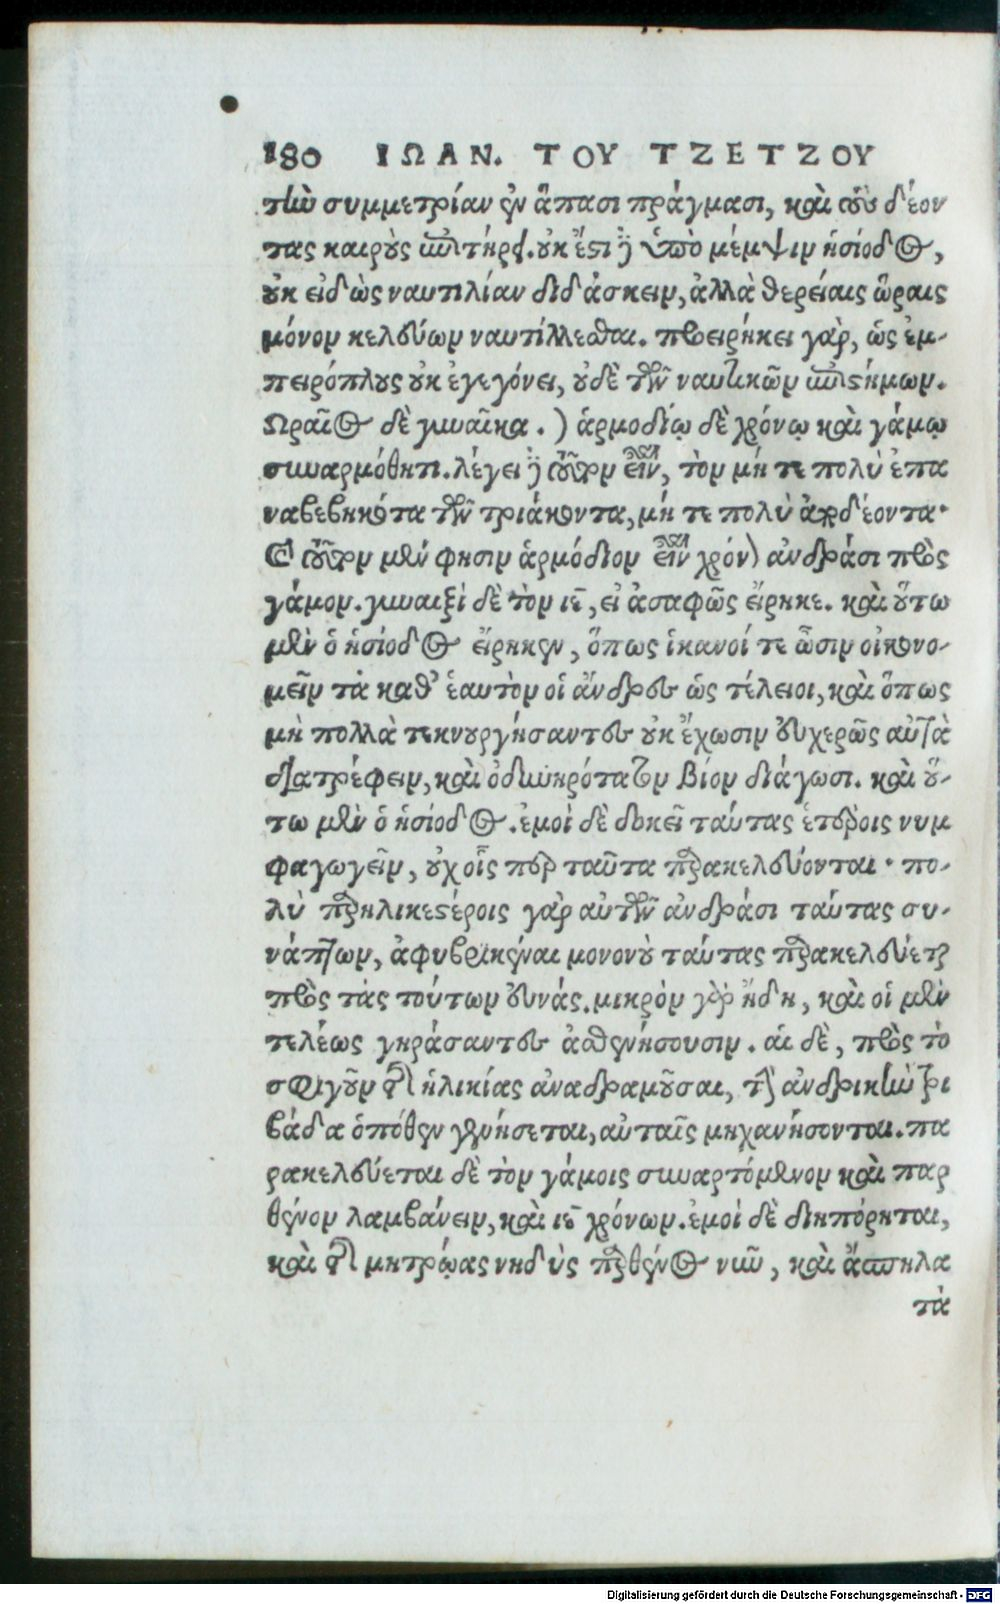 180 ΙΩΑΝ. ΤΟΥ ΤΖΕΤΖΟΥ
τὴν συμμετρίαν ἐν ἅπασι πράγμασι, καὶ τοὺς δέον
τας καιροὺς ἐπιτήρει. οὐκ ἔστι δὲ ὑπὸ μέμψιν ἡσίοδος,
οὐκ εἰδὼς ναυτιλίαν διδάσκειν, ἀλλὰ θερείαις ὥραις
μόνον κελεύων ναυτίλλεσθαι. προειρήκει γὰρ, ὡς ἐμ-
πειρόπλους οὐκ ἐγεγόνει, οὐδὲ τῶν ναυτικῶν ἐπιστήμων.
Ωραῖος δὲ γυναῖκα. ) ἁρμοδίῳ δὲ χρόνῳ καὶ γάμῳ
συναρμόθητι. λέγει δὲ καιρὸν εἶναι, τὸν μή τε πολὺ ἐπα
ναβεβηκότα τῶν τριάκοντα, μή τε πολὺ ἀποδέοντα.
τοῦτον μὲν φησιν ἁρμόδιον εἶναι χρόνον ἀνδράσι πρὸς
γάμον. γυναιξὶ δὲ τὸν ιε, εἰ ἀσαφῶς εἴρηκε. καὶ οὕτω
μὲν ὁ ἡσίοδος εἴρηκεν, ὅπως ἱκανοί τε ὦσιν οἰκονο-
μεῖν τὰ καθ' ἑαυτὸν οἱ ἄνδρες ὡς τέλειοι, καὶ ὅπως
μὴ πολλὰ τεκνουργήσαντες οὐκ ἔχωσιν εὐχερῶς αὐτὰ
διατρέφειν, καὶ ὀδυνηρότατον βίον διάγωσι. καὶ οὕ-
τω μὲν ὁ ἡσίοδος. ἐμοὶ δὲ δοκεῖ ταύτας ἑτέροις νυμ
φαγωγεῖν, οὐχ οἷς περ ταῦτα παρακελεύονται. πο-
λὺ παρηλικεστέροις γὰρ αὐτῶν ἀνδράσι ταύτας συ-
νάπτων, ἀφυβρικέναι μονονοὺ ταύτας παρακελεύεται
πρὸς τὰς τούτων εὐνάς. μικρὸν γὰρ ἤδη, καὶ οἱ μὲν
τελέως γηράσαντες ἀσθενήσουσιν. αἱ δὲ, πρὸς τὸ
σφριγοῦν τῆς ἡλικίας ἀναδραμοῦσαι, τὴν ἀνδρικὴν τρι
βάδα ὁπόθεν γενήσεται, αὐταῖς μηχανήσονται. πα
ρακελεύεται δὲ τὸν γάμοις συναρτόμενον καὶ παρ
θένον λαμβάνειν, καὶ ιε χρόνων. ἐμοὶ δὲ διηπόρηται,
καὶ τῆς μητρῴας νηδὺς παρθένος νῦν, καὶ ἄππηλα
τα
Digitalisierung gefördert durch die Deutsche Forschungsgemeinschaft - DFG